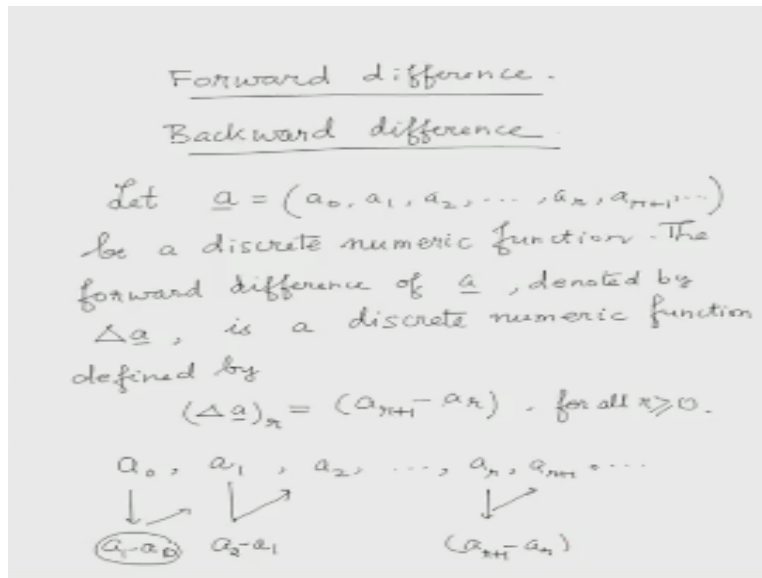 Forward difference.
Backward difference.
Let a = (a₀, a₁, a₂, ..., aᵣ, aᵣ₊₁, ...)
be a discrete numeric function. The
forward difference of a, denoted by
Δa, is a discrete numeric function
defined by
(Δa)ᵣ = (aᵣ₊₁ - aᵣ). for all r ≥ 0.
a₀, a₁, a₂, ..., aᵣ, aᵣ₊₁, ...
a₁-a₀ a₂-a₁ (aᵣ₊₁-aᵣ)